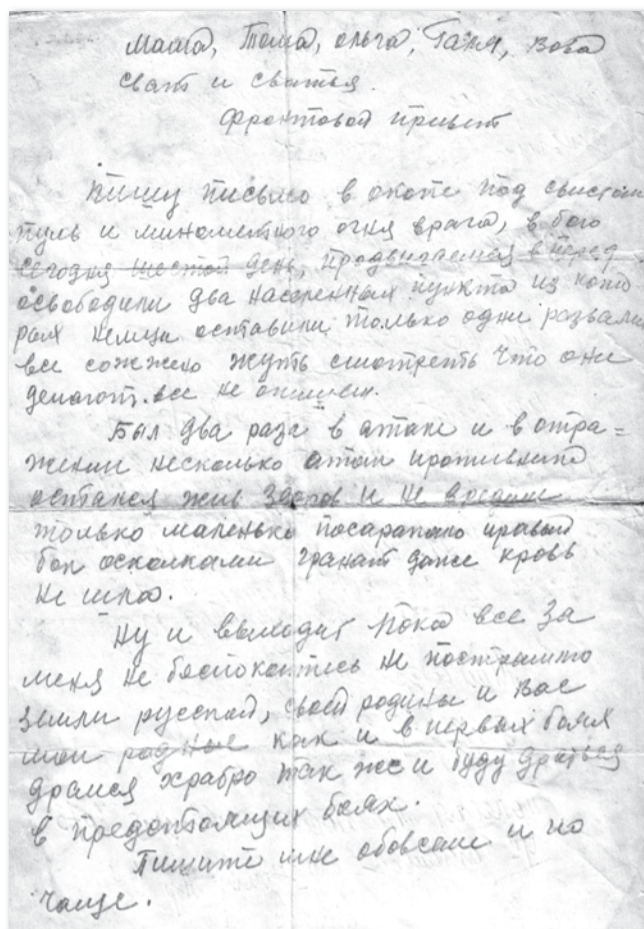 Маша, Тома, Ольга, Галя, Вова
Сват и сватья.
Фронтовой привет
Пишу письмо в окопе под свистом
пуль и минометного огня врага, в бою
сегодня шестой день, продвигаемся вперед
освободили два населенных пункта из кото
рых немцы оставили только одни развали
все сожжено жуть смотреть что они
делают. все не опишеш.
Был два раза в атаке и в отра=
жении несколько атак противника
остался жив здоров и не вредим
только маленько посарапало правый
бок осколками гранат даже кровь
не шла.
Ну и выходит пока все за
меня не беспокойтесь не
земли русской, своей родины и Вас
мои родные как и в первых боях
дрался храбро так же и буду драться
в предстоящих боях.
Пишите мне обовсем и по
чаще.